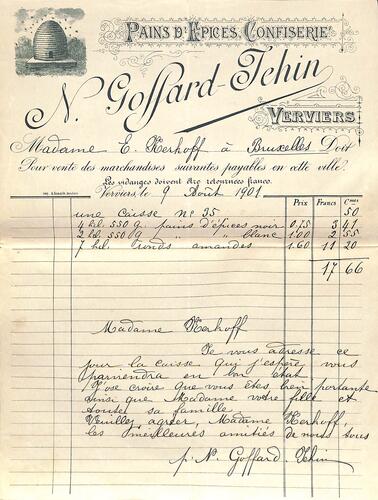 PAINS D'ÉPICES, CONFISERIE
N. Goffard-Tehin
VERVIERS
Madame E. Kerhoff à Bruxelles Doit
Pour vente des marchandises suivantes payables en cette ville.
Les vidanges doivent être retournées franco.
Verviers, le 9 Août 1901
Prix Francs Cmes
une caisse No 35 50
4 kil. 550 g. pains d'épices noir 0,75 3 41
2 kil. 550 g. " " blanc 1.00 2 55
7 kil. ronds amandes 1.60 11 20
17 66
Madame Kerhoff
Je vous adresse ce
jour la caisse que j'espère vous
parviendra en bon état
J'ose croire que vous êtes bien portante
ainsi que Madame votre fille et
toute sa famille.
Veuillez agréer, Madame Kerhoff,
les meilleures amitiés de nous tous
p. N. Goffard. Tehin